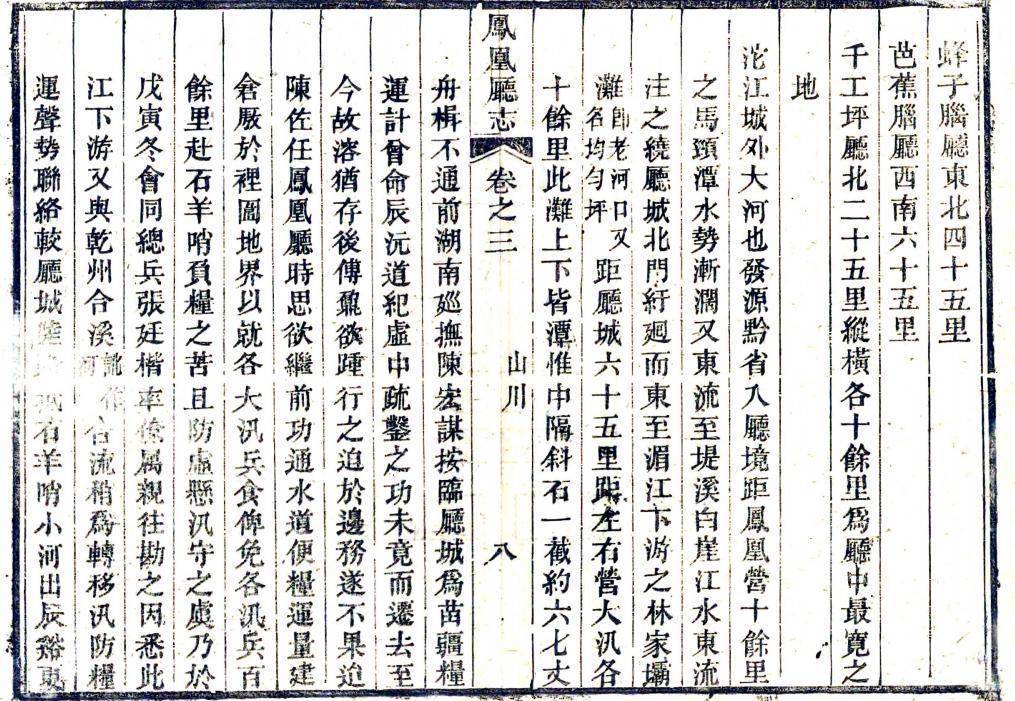 蜂子腦廳東北四十五里
芭蕉腦廳西南六十五里
千工坪廳北二十五里縱橫各十餘里爲廳中最寬之
地
沱江城外大河也發源黔省入廳境距鳳凰營十餘里
之馬頸潭水勢漸濶又東流至堤溪白崖江水東流
注之繞廳城北門紆廻而東至湄江下游之林家壩
灘卽老河口又名均勻坪距廳城六十五里距左右營大汛各
十餘里此灘上下皆潭惟中隔斜石一截約六七丈
鳳凰廳志 卷之三 山川 八
舟楫不通前湖南廵撫陳宏謀按臨廳城爲苗疆糧
運計曾命辰沅道紀虛中疏鑿之功未竟而遷去至
今故溶猶存後傅鼐欲踵行之迫於邊務遂不果迨
陳佐任鳳凰廳時思欲繼前功通水道便糧運量建
倉厫於裡圍地界以就各大汛兵食俾免各汛兵百
餘里赴石羊哨負糧之苦且防虛懸汛守之虞乃於
戊寅冬會同總兵張廷楷率僚属親往勘之因悉此
江下游又與乾州合溪河合流稍爲轉移汛防糧
運聲勢聯絡較廳城石羊哨小河出辰谿更